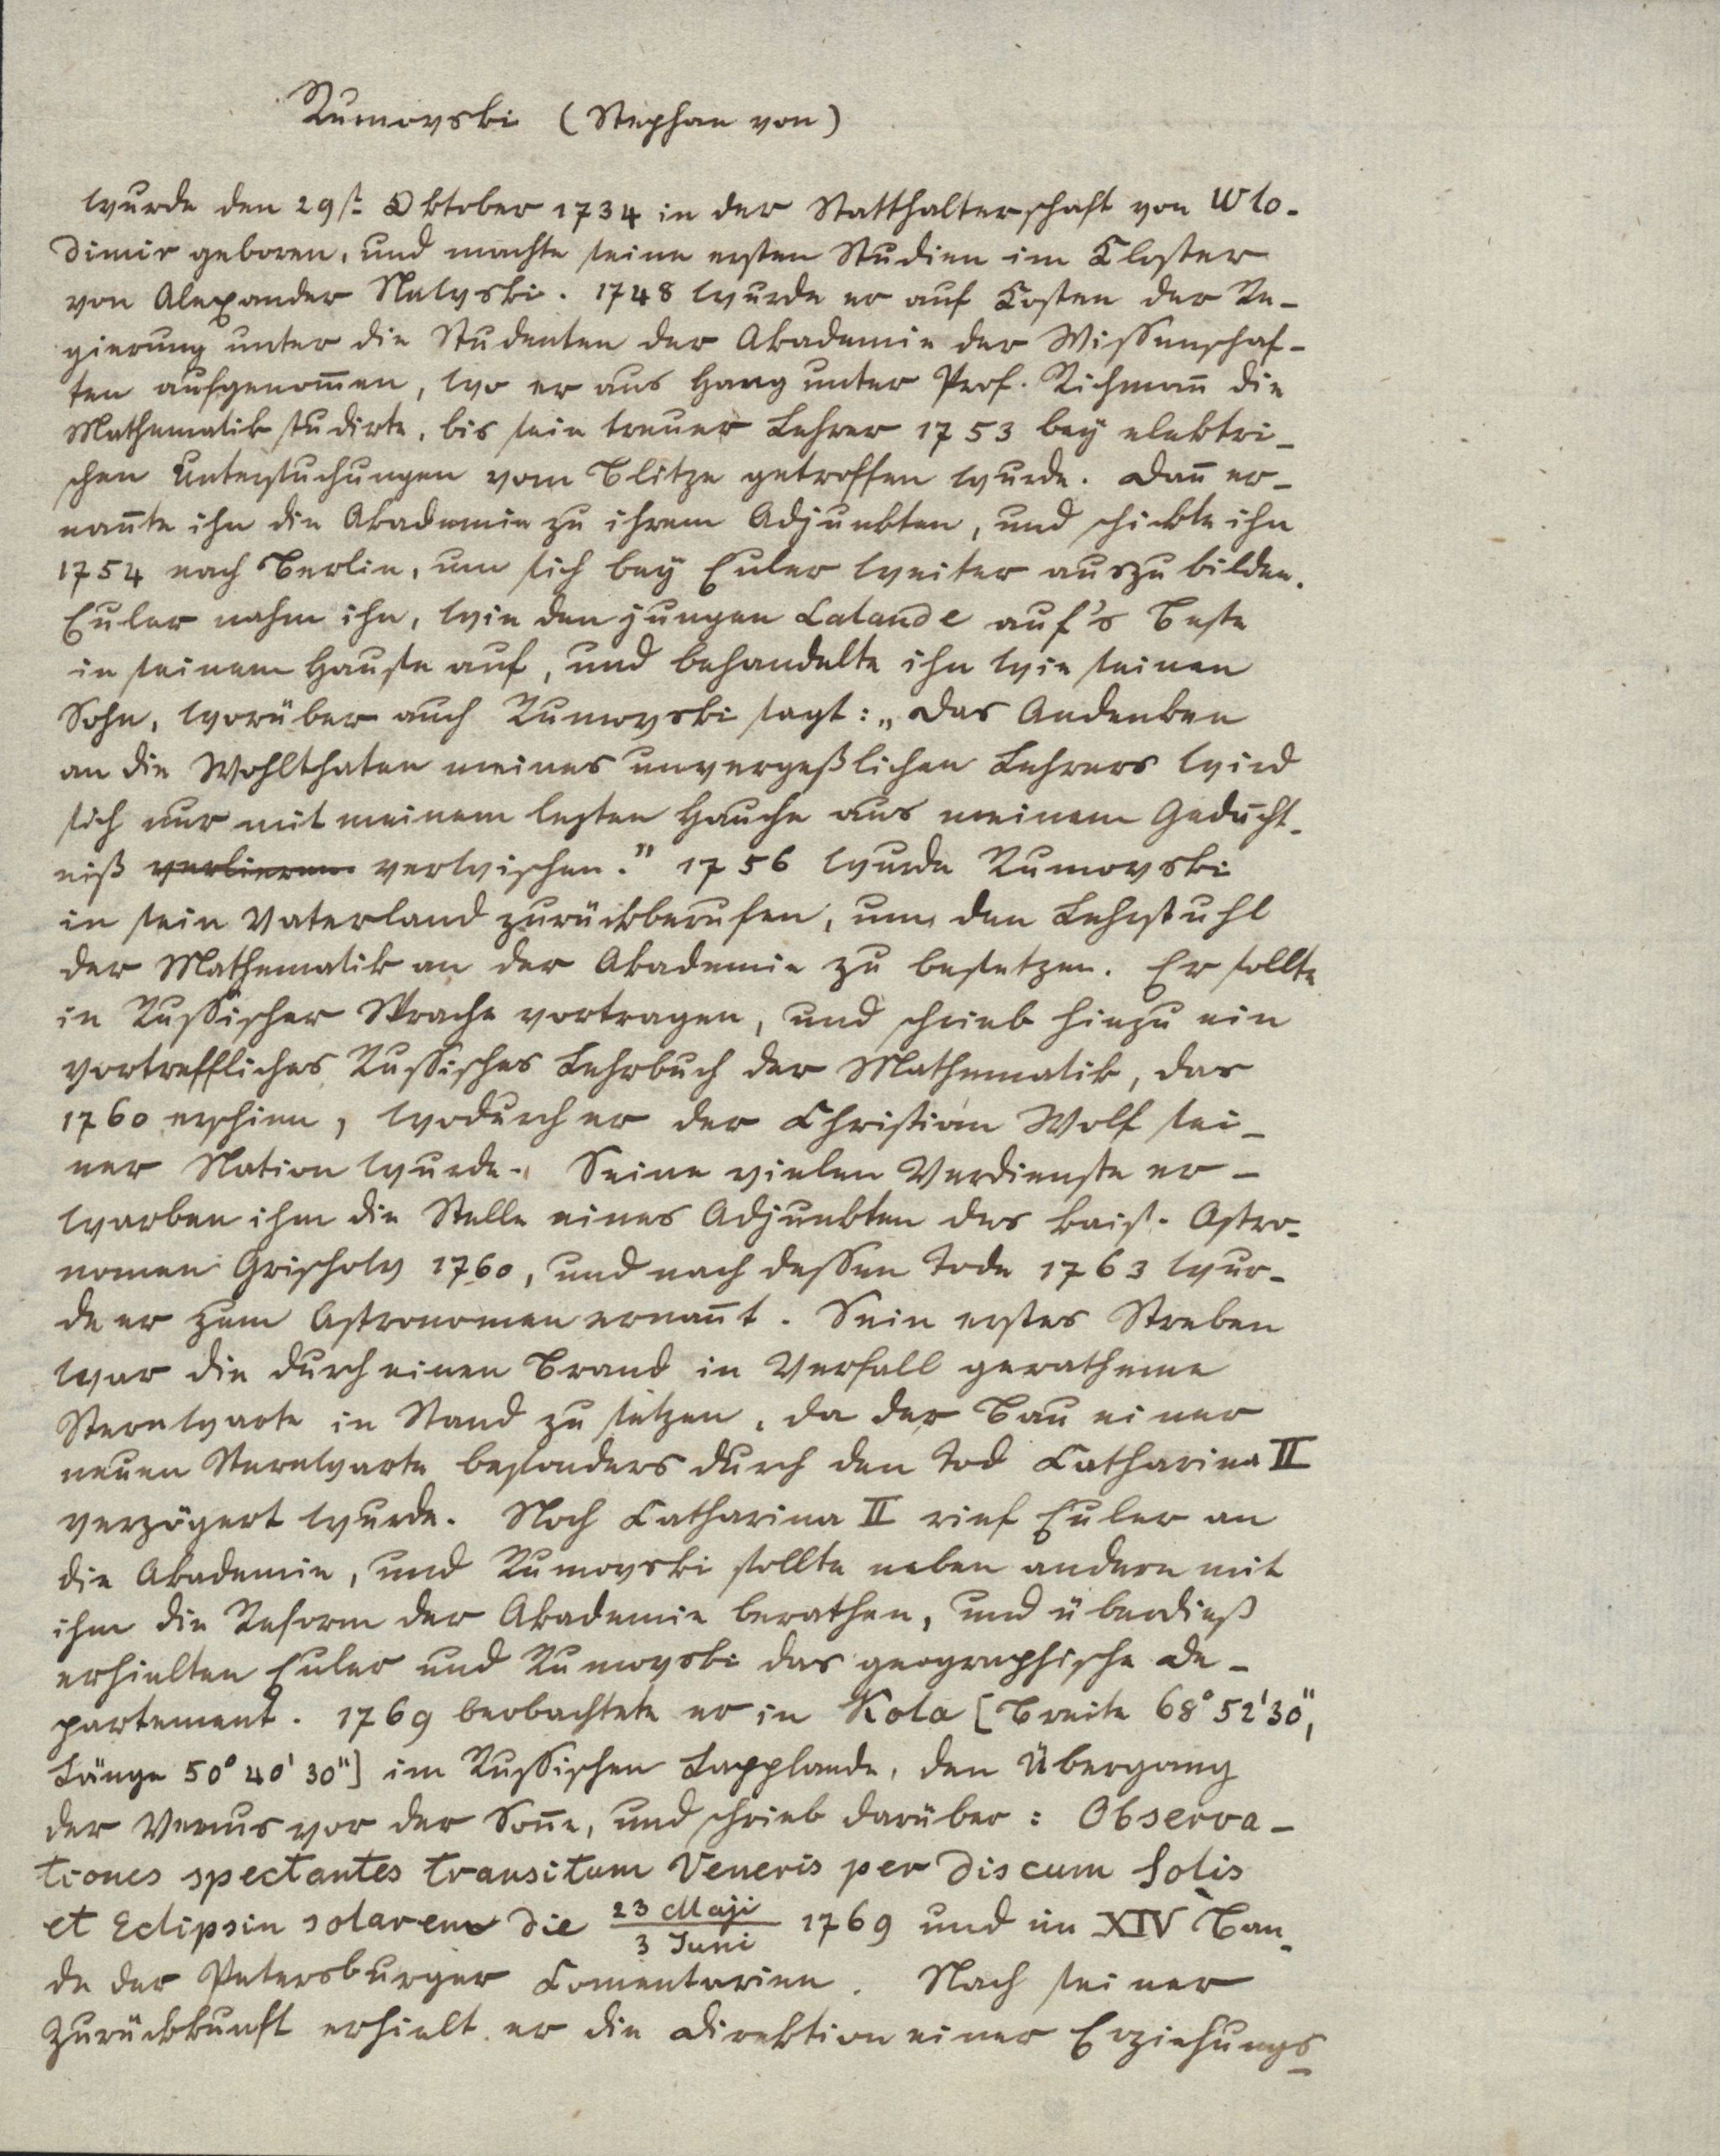 Rumovski (Stephan von)
wurde den 29st. Oktober 1734 in der Statthalterschaft von Wlo-
dimir geboren, und machte seine ersten Studien im Kloster
von Alexander Nevski. 1748 wurde er auf Kosten der Re-
gierung unter die Studenten der Akademie der Wissenschaf-
ten aufgenom̄en, wo er aus Hang unter Prof. Richman̄ die
Mathematik studirte, bis sein treuer Lehrer 1753 bey elektri-
schen Untersuchungen vom Blitze getroffen wurde. Dan̄ er-
nan̄te ihn die Akademie zu ihrem Adjunkten, und schickte ihn
1754 nach Berlin, um sich bey Euler weiter auszubilden.
Euler nahm ihn, wie den jungen Lalande auf's Beste
in seinem Hause auf, und behandelte ihn wie seinen
Sohn, worüber auch Rumovski sagt: „Das Andenken
an die Wohlthaten meines unvergeßlichen Lehrers wird
sich nur mit meinem lezten Hauche aus meinem Gedächt-
niß verlieren verwischen." 1756 wurde Rumovski
in sein Vaterland zurückberufen, um den Lehrstuhl
der Mathematik an der Akademie zu besetzen. Er sollte
in Russischer Sprache vortragen, und schrieb hiezu ein
vortreffliches Russisches Lehrbuch der Mathematik, das
1760 erschien, wodurch er der Christian Wolf sei-
ner Nation wurde. Seine vielen Verdienste er-
warben ihm die Stelle eines Adjunkten des kais. Astro-
nomen Grischow 1760, und nach dessen Tode 1763 wur-
de er zum Astronomen ernan̄t. Sein erstes Streben
war die durch einen Brand in Verfall gerathene
Sternwarte in Stand zu setzen, da der Bau einer
neuen Sternwarte besonders durch den Tod Catharina II
verzögert wurde. Noch Catharina II rief Euler an
die Akademie, und Rumovski sollte neben andern mit
ihm die Reform der Akademie berathen, und überdieß
erhielten Euler und Rumovski das geographische De-
partement. 1769 beobachtete er in Kola [Breite 68° 52' 30",
Länge 50° 40' 30"] im Russischen Lapplande, den Übergang
der Venus vor der Son̄e, und schrieb darüber: Observa-
tiones spectantes transitum Veneris per discum Solis
et Eclipsin solarem die 23 Maji / 3 Juni 1769 und im XIV Ban-
de der Petersburger Comentarien. Nach seiner
Zurückkunft erhielt er die Direktion einer Erziehungs-